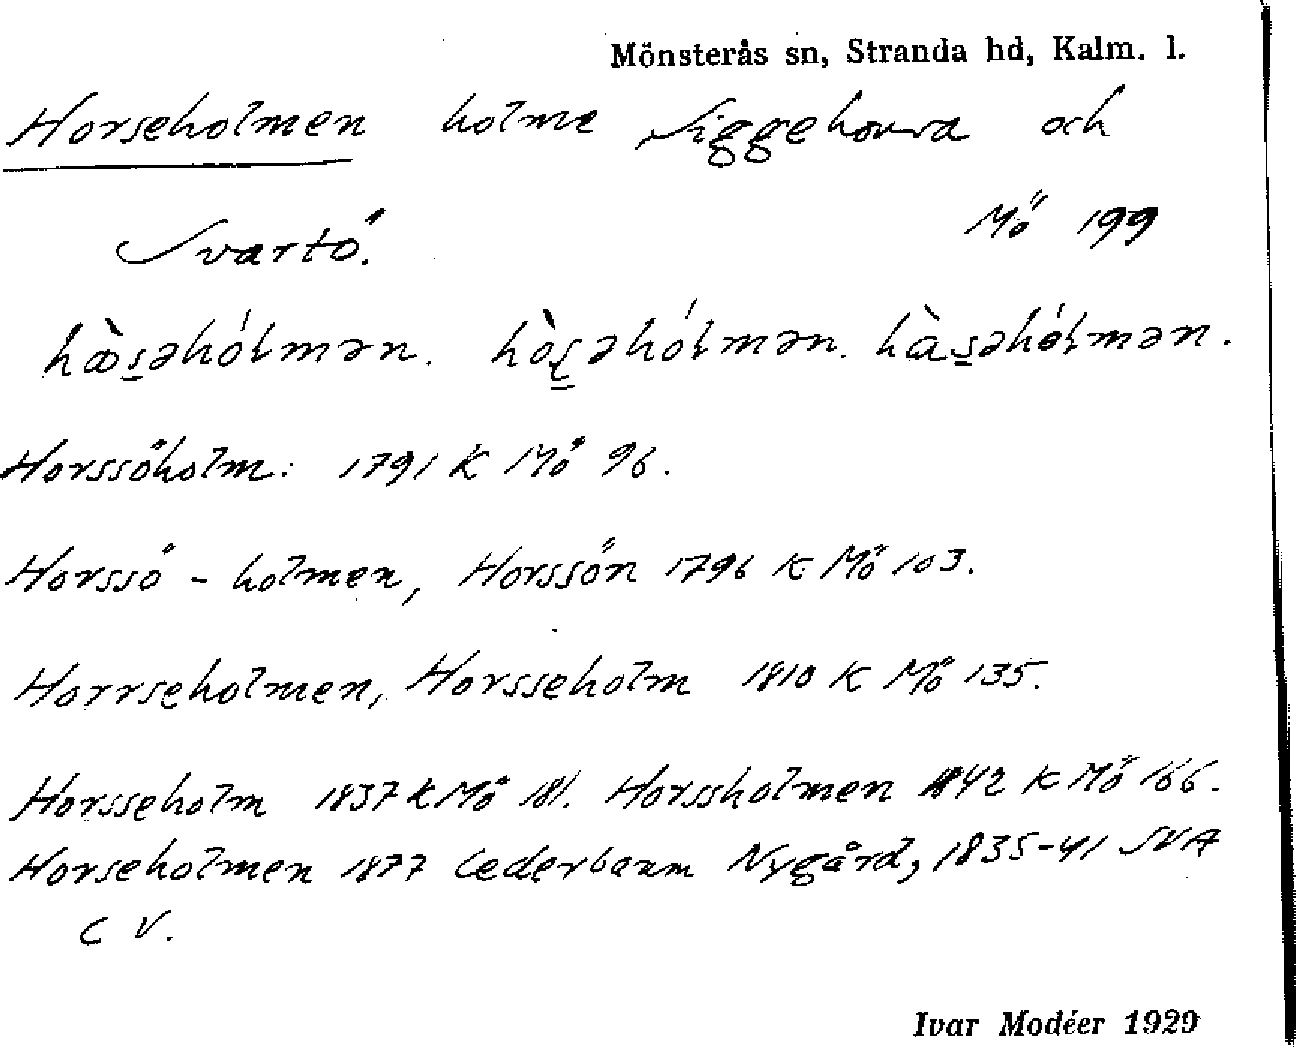 Mönsterås sn, Stranda hd, Kalm. l.
Horseholmen holme Siggehorva och
Svartö. Mö 199
hæ̀s̠əhólmən. hòs̠əhólmən. hàs̠əhólmən.
Horssöholm: 1791 K Mö 96.
Horssö - holmen, Horssön 1796 K Mö 103.
Horrseholmen, Horsseholm 1810 K Mö 135.
Horsseholm 1837 K Mö 181. Horssholmen 1842 K Mö 166.
Horseholmen 1877 Cederbaum Nygård, 1835-41 SVA
C V.
Ivar Modéer 1929